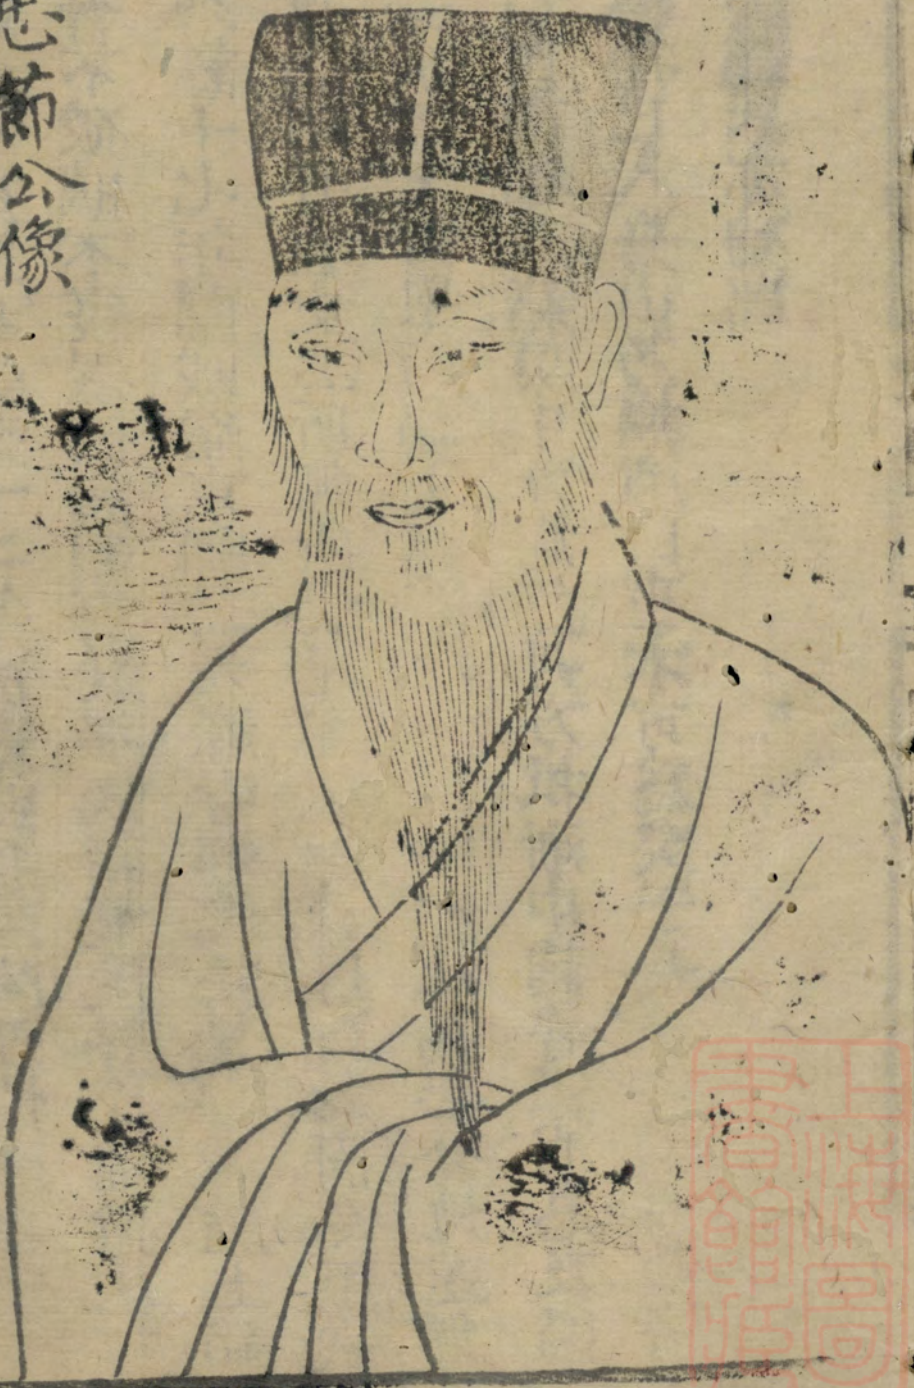 忠節公像
上海圖
書館藏